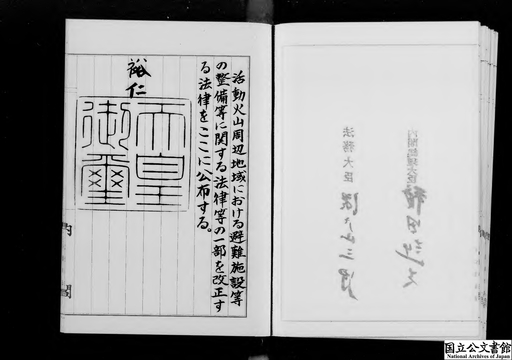 内閣総理大臣
法務大臣
活動火山周辺地域における避難施設等
の整備等に関する法律等の一部を改正す
る法律をここに公布する。
裕仁
天皇
御璽
内閣
国立公文書館
National Archives of Japan